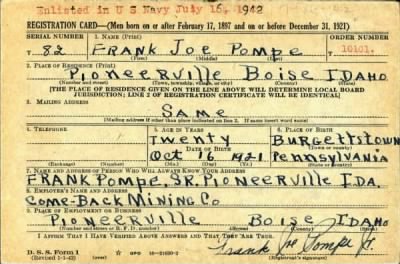 Enlisted in U S Navy July 16, 1942
REGISTRATION CARD—(Men born on or after February 17, 1897 and on or before December 31, 1921)
SERIAL NUMBER 1. NAME (Print) ORDER NUMBER
T 82 FRANK JOE POMPE 10101.
(First) (Middle) (Last)
2. PLACE OF RESIDENCE (Print)
PIONEERVILLE BOISE IDAHO
(Number and street) (Town, township, village, or city) (County) (State)
[THE PLACE OF RESIDENCE GIVEN ON THE LINE ABOVE WILL DETERMINE LOCAL BOARD
JURISDICTION; LINE 2 OF REGISTRATION CERTIFICATE WILL BE IDENTICAL]
3. MAILING ADDRESS
SAME
[Mailing address if other than place indicated on line 2. If same insert word same]
4. TELEPHONE 5. AGE IN YEARS 6. PLACE OF BIRTH
TWENTY BURGETTSTOWN
DATE OF BIRTH (Town or county)
OCT 16 1921 PENNSYLVANIA
(Exchange) (Number) (Mo.) (Day) (Yr.) (State or country)
7. NAME AND ADDRESS OF PERSON WHO WILL ALWAYS KNOW YOUR ADDRESS
FRANK POMPE, SR. PIONEERVILLE IDA.
8. EMPLOYER'S NAME AND ADDRESS
COME-BACK MINING CO
9. PLACE OF EMPLOYMENT OR BUSINESS
PIONEERVILLE BOISE IDAHO
(Number and street or R. F. D. number) (Town) (County) (State)
I AFFIRM THAT I HAVE VERIFIED ABOVE ANSWERS AND THAT THEY ARE TRUE.
D. S. S. Form 1 GPO 16-21630-2 Frank Joe Pompe Jr.
(Revised 1-1-42) (over)